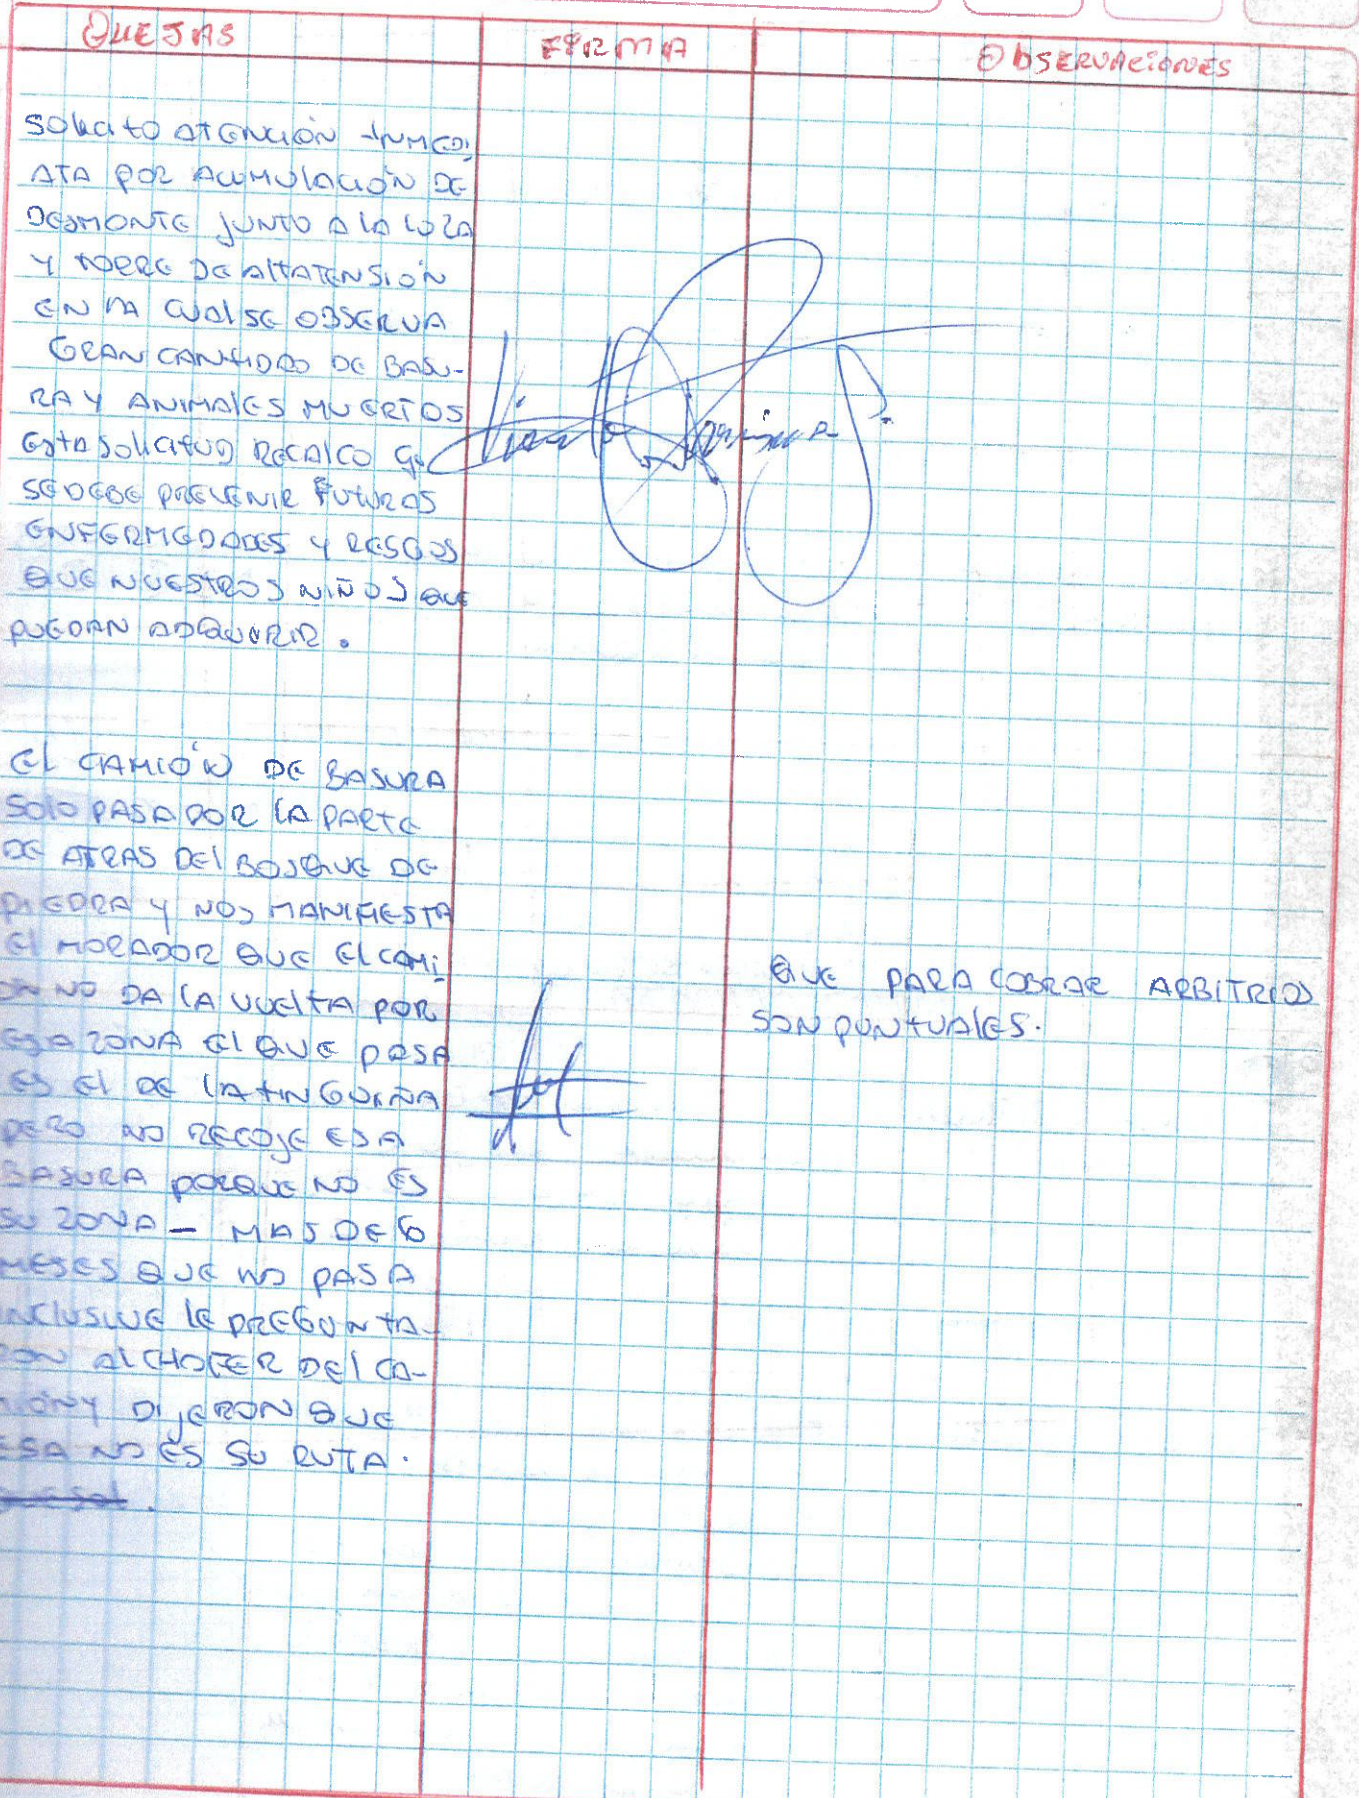 QUEJAS FIRMA OBSERVACIONES
SOLICITO ATENCIÓN INMEDI
ATA POR ACUMULACIÓN DE
DESMONTE JUNTO A LA LOZA
Y TORRE DE ALTATENSIÓN
EN LA CUAL SE OBSERVA
GRAN CANTIDAD DE BASU-
RA Y ANIMALES MUERTOS
ESTA SOLICITUD RECALCO Q.
SE DEBE PREVENIR FUTUROS
ENFERMEDADES Y RESGOS
QUE NUESTROS NIÑOS QUE
PUEDAN ADQUERIR.
EL CAMIÓN DE BASURA
SOLO PASA POR LA PARTE
DE ATRAS DEL BOSQUE DE
PIEDRA Y NOS MANIFIESTA
EL MORADOR QUE EL CAMI
ON NO DA LA VUELTA POR
ESA ZONA EL QUE PASA
ES EL DE LA TINGUIÑA
PERO NO RECOJE ESA
BASURA PORQUE NO ES
SU ZONA - MAS DE 6
MESES QUE NO PASA
INCLUSIVE LE PREGUNTA-
RON AL CHOFER DEL CA-
MIÓN Y DIJERON QUE
ESA NO ES SU RUTA.
QUE PARA COBRAR ARBITRIOS
SON PUNTUALES.